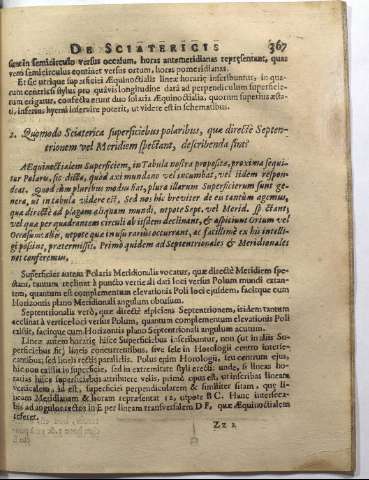 DE SCIATERICIS 367
sunt in semicirculo versus occasum, horas antemeridianas repræsentant, quas
verò semicirculus continet versus ortum, horas pomeridianas.
Et sic utrique superficiei Æquinoctialis lineæ horariæ inscribuntur, in qua-
rum centris si stylus pro quávis longitudine datâ ad perpendiculum superficie-
rum erigatur, confecta erunt duo solaria Æquinoctialia, quorum superius æsta-
ti, inferius hyemi inservire poterit, ut videre est in schematibus.
2. Quomodo Sciaterica superficiebus polaribus, quæ directè Septen-
trionem vel Meridiem spectant, describenda sint?
ÆQuinoctialem Superficiem, in Tabula nostra proposita, proxima sequi-
tur Polaris, sic dicta, quòd axi mundano vel incumbat, vel iidem respon-
deat. Quod cum pluribus modis fiat, plura illarum Superficierum sunt ge-
nera, ut in tabula videre est. Sed nos hic breviter de eâ tantùm agemus,
quæ directè ad plagam aliquam mundi, utpote Sept. vel Merid. spectant,
vel quæ per quadrantem circuli ab iisdem declinant, & aspiciunt Ortum vel
Occasum. aliæ, utpote quæ in usu rariùs occurrant, ac facillimè ex his intelli-
gi possint, prætermissis. Primò quidem ad Septentrionales & Meridionales
nos conferemus.
Superficies autem Polaris Meridionalis vocatur, quæ directè Meridiem spe-
ctans, tantum reclinat à puncto verticali dati loci versus Polum mundi extan-
tem, quantum est complementum elevationis Poli loci ejusdem, facitque cum
Horizontis plano Meridionali angulum obtusum.
Septentrionalis verò, quæ directè aspiciens Septentrionem, itidem tantum
reclinat à vertice loci versus Polum, quantum complementum elevationis Poli
exstat, facitque cum Horizontis plano Septentrionali angulum acutum.
Lineæ autem horariæ hisce Superficiebus inscribuntur, non (ut in aliis Su-
perficiebus fit) lineis concurrentibus, sive sese in Horologii centro interse-
cantibus; sed lineis rectis parallelis. Polus enim Horologii, seu centrum ejus,
hîc non existit in superficie, sed in extremitate styli erecti: unde, si lineas ho-
rarias hisce superficiebus attribuere velis, primò opus est, ut inscribas lineam
verticalem, id est, superficiei perpendicularem & similiter sitam, quæ li-
neam Meridianam & horam repræsentat 12, utpote BC. Hanc intersec-
bis ad angulos rectos in E per lineam transversalem DF, quæ Æquinoctialem
referet.
Zz 2